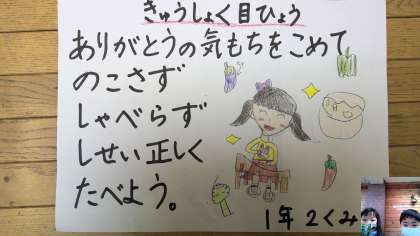 きゅうしょく目ひょう
ありがとうの気もちをこめて
のこさず
しゃべらず
しせい正しく
たべよう。
1年2くみ